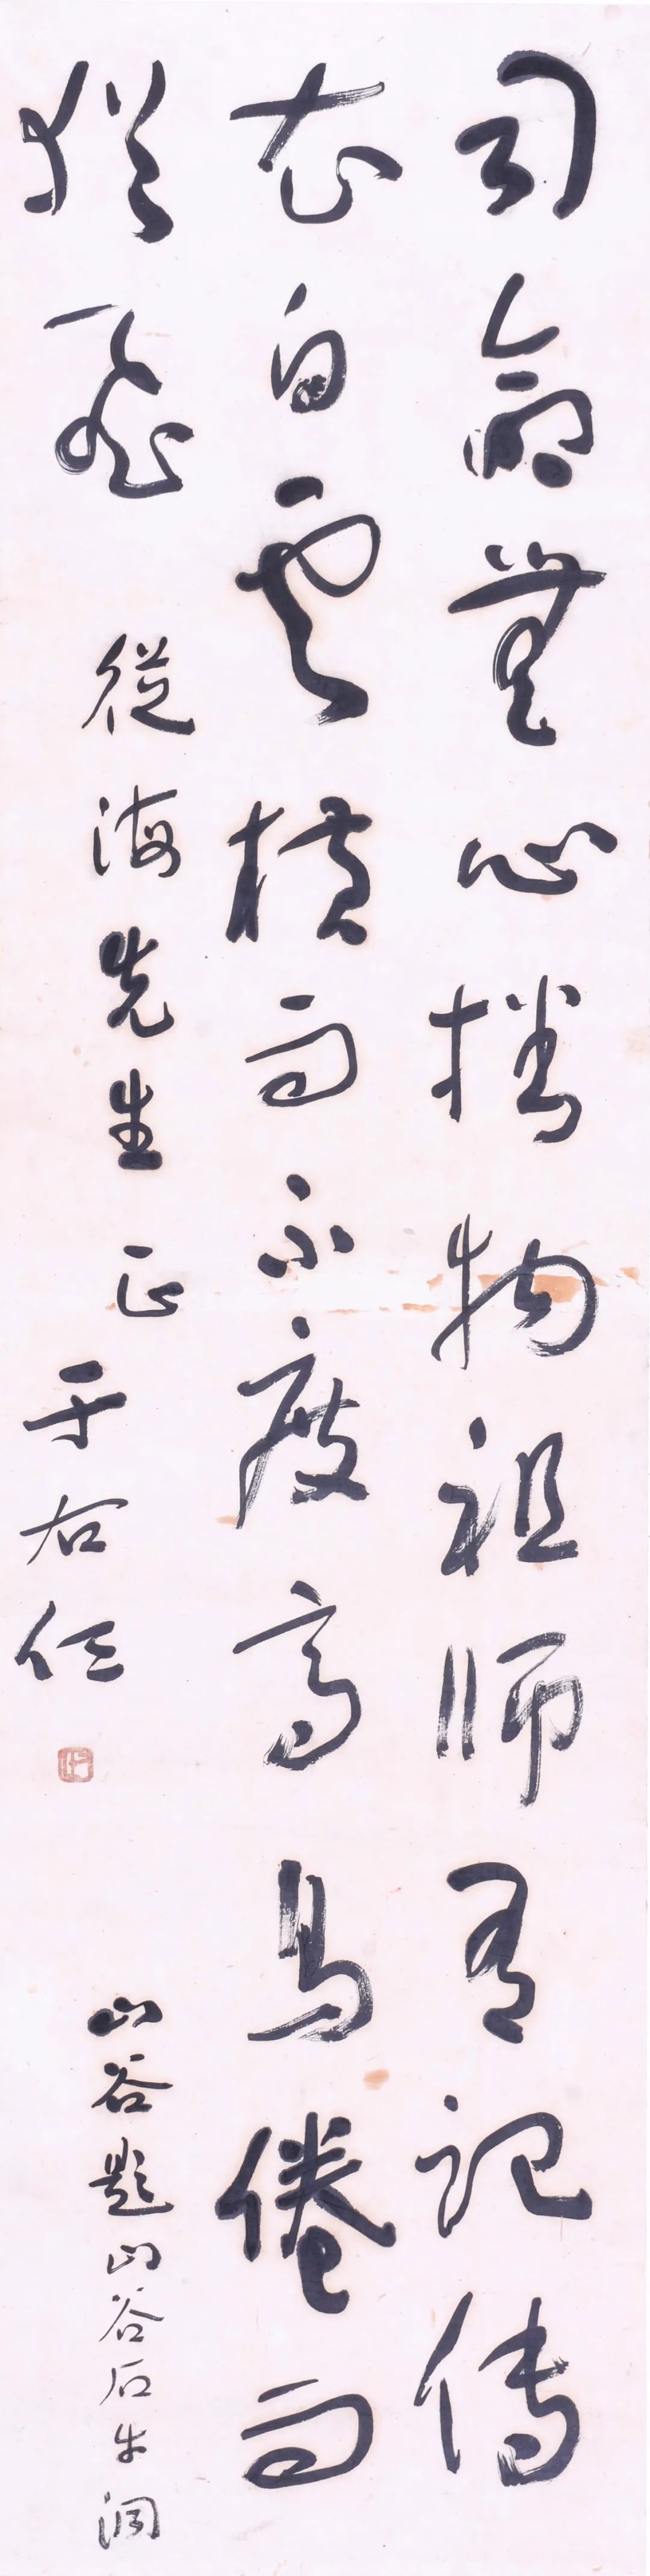 司命無心播物祖師有記傳
衣白雲橫而不度高鳥倦而
猶飛
從海先生 正
于右任
山谷題山谷石牛洞